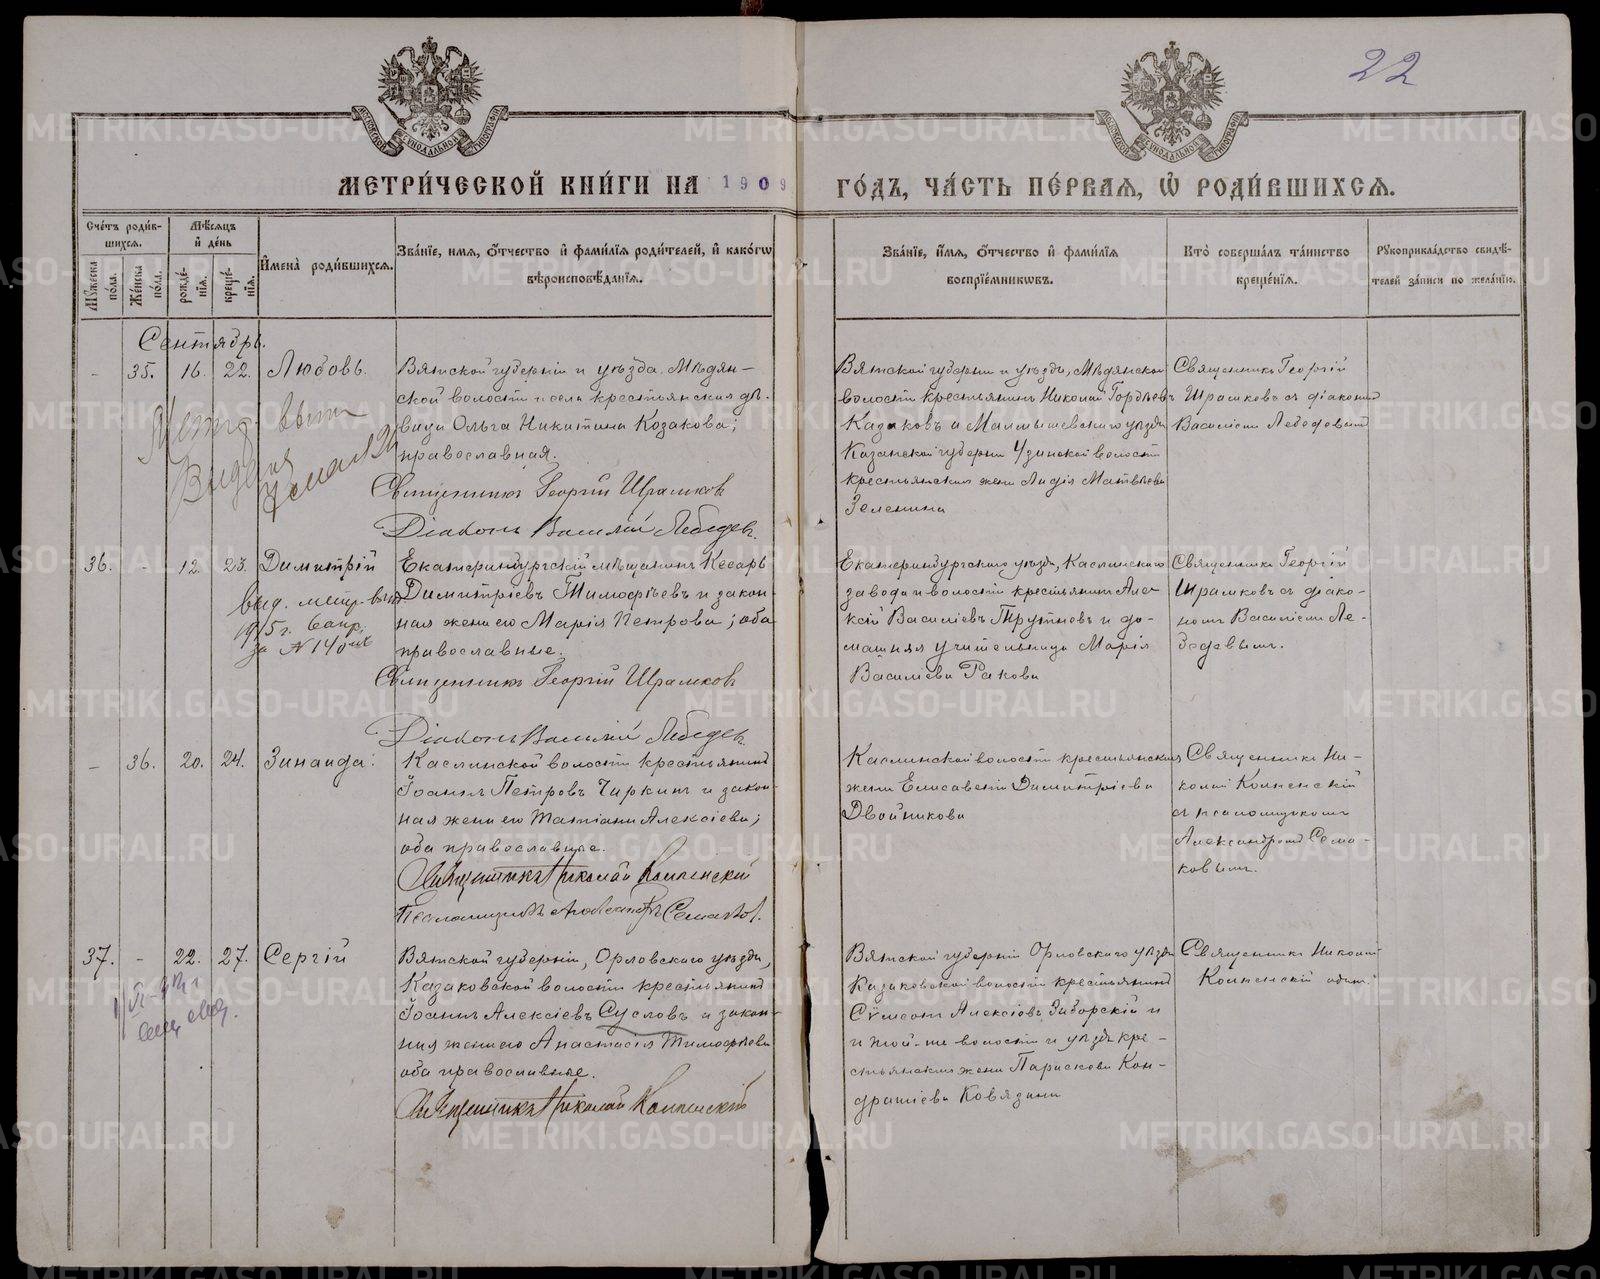 22
МОСКОВСКОЙ СѴНОДАЛЬНОЙ ТИПОГРАФІИ
МОСКОВСКОЙ СѴНОДАЛЬНОЙ ТИПОГРАФІИ
МЕТРИ́ЧЕСКОЙ КНИ́ГИ НА 1909 ГО́ДЪ, ЧА́СТЬ ПЕ́РВАЯ, Ѽ РОДИ́ВШИХСЯ.
Сче́тъ роди́в-
шихся.
Мѣ́сяцъ
и҆ де́нь
Мꙋ́жеска
по́ла.
Же́нска
по́ла.
рожде́-
нїѧ.
креще́-
нїѧ.
И҆мена̀ роди́вшихся.
Зва́нїе, имѧ, ѻ҆́тчество и҆ фами́лїѧ роди́телей, и҆ како́гѡ
вѣроисповѣ́данїѧ.
Зва́нїе, и҆́мѧ, ѻ҆́тчество и҆ фами́лїѧ
воспрїе́мникѡвъ.
Кто̀ соверша́лъ та́инство
креще́нїѧ.
Рꙋкоприкла́дство свидѣ́-
телей за́писи по жела́нїю.
Сентябрь.
- 35. 16. 22. Любовь.
Вятской губерніи и уѣзда, Мѣдян-
ской волости и села крестьянская дѣ-
вица Ольга Никитина Козакова;
православная.
Священникъ Георгій Шрамковъ
Діаконъ Василій Лебедевъ.
Вятской губерніи и уѣзда, Мѣдянской
волости крестьянинъ Николай Гордѣевъ
Казаковъ и Малмышевского уѣзда
Казанской губерніи Узинской волости
крестьянская жена Лидія Матвѣева
Зеленина
Священникъ Георгій
Шрамковъ съ діакономъ
Василіемъ Лебедевымъ
36. - 12. 23. Димитрій
выд. метр. вып.
1915 г.
за № 140
Екатеринбургскій мѣщанинъ Кесарь
Димитріевъ Тимофѣевъ и закон-
ная жена его Марія Петрова; оба
православные.
Священникъ Георгій Шрамковъ
Діаконъ Василій Лебедевъ.
Екатеринбургскаго уѣзда, Каслинскаго
завода и волости крестьянинъ Алек-
сѣй Василіевъ Трутневъ и до-
машняя учительница Марія
Василіева Ракова
Священникъ Георгій
Шрамковъ съ діако-
номъ Василіемъ Ле-
бедевымъ.
- 36. 20. 24. Зинаида.
Каслинской волости крестьянинъ
Іоаннъ Петровъ Чиркинъ и закон-
ная жена его Татіана Алексіева;
оба православные.
Священникъ Николай
Псаломщикъ Александръ Семаковъ.
Каслинской волости крестьянская
жена Елисавета Димитріева
Двойникова
Священникъ Ни-
колай
съ псаломщикомъ
Александромъ Сема-
ковымъ.
37. - 22. 27. Сергій
Вятской губерніи, Орловскаго уѣзда,
Казаковской волости крестьянинъ
Іоаннъ Алексіевъ Сусловъ и закон-
ная жена его Анастасія Тимофѣева
оба православные.
Священникъ Николай
Вятской губерніи Орловскаго уѣзда
Казаковской волости крестьянинъ
Сѵмеонъ Алексіевъ Зиборскій и
и той-же волости и уѣзда кре-
стьянская жена Параскева Кон-
дратіева Ковязина
Священникъ Николай
одинъ